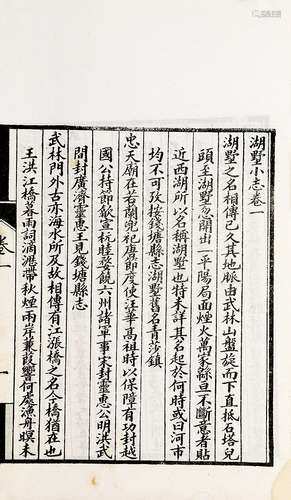 湖墅小志卷一
湖墅之名相傳已久其地脈由武林山盤旋而下直抵石塔兒
頭至湖墅忽開出一平陽局面煙火萬家緜亘不斷意者貼
近西湖所以名稱湖墅也特未詳其名起於何時或曰河市
均不可攷接錢塘縣志湖墅舊名青莎鎮
忠天廟在若蘭兜祀唐節度使汪華高祖時以保障有功封越
國公持節歙宣杭睦婺饒六州諸軍事宋封靈惠公明洪武
間封廣濟靈惠王見錢塘縣志
武林門外古亦海水所及故相傳有江漲橋之名今橋猶在也
王洪江橋暮雨詞滴滴帶秋煙兩岸蒹葭響何處漁舟暝未
卷一
一